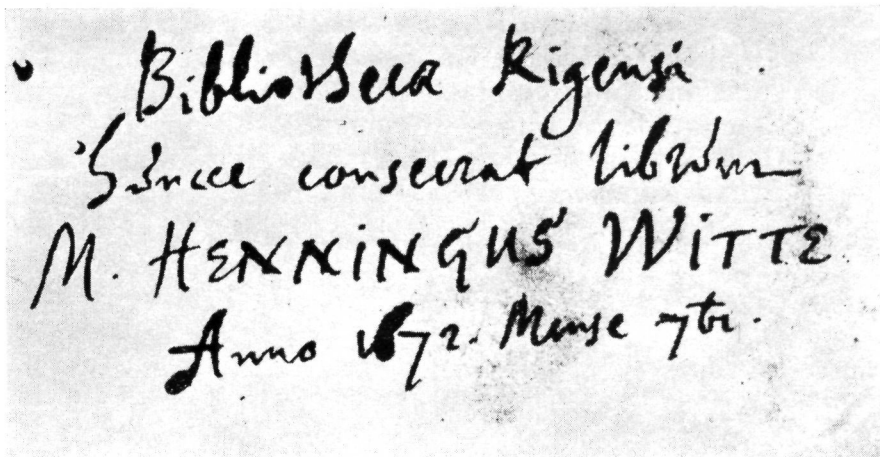 Bibliotheca Rigensi
Hunce consecrat librum
M. HENNINGUS WITTE
Anno 1672. Mense 7br.